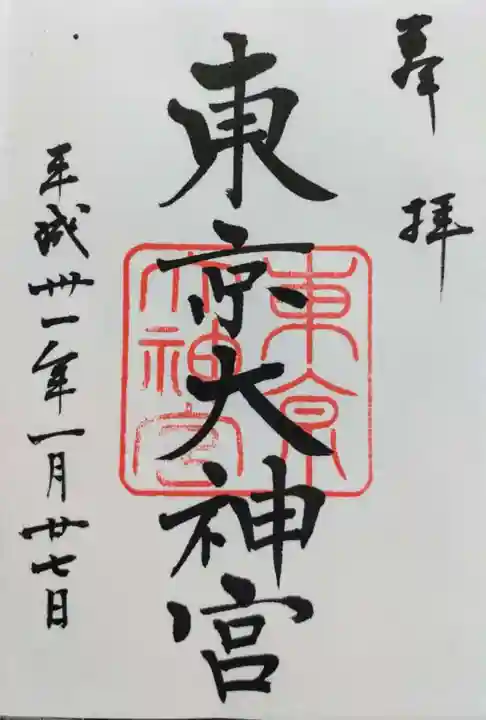 奉拝
東京大神宮
東京大神宮
平成卅一年一月廿七日